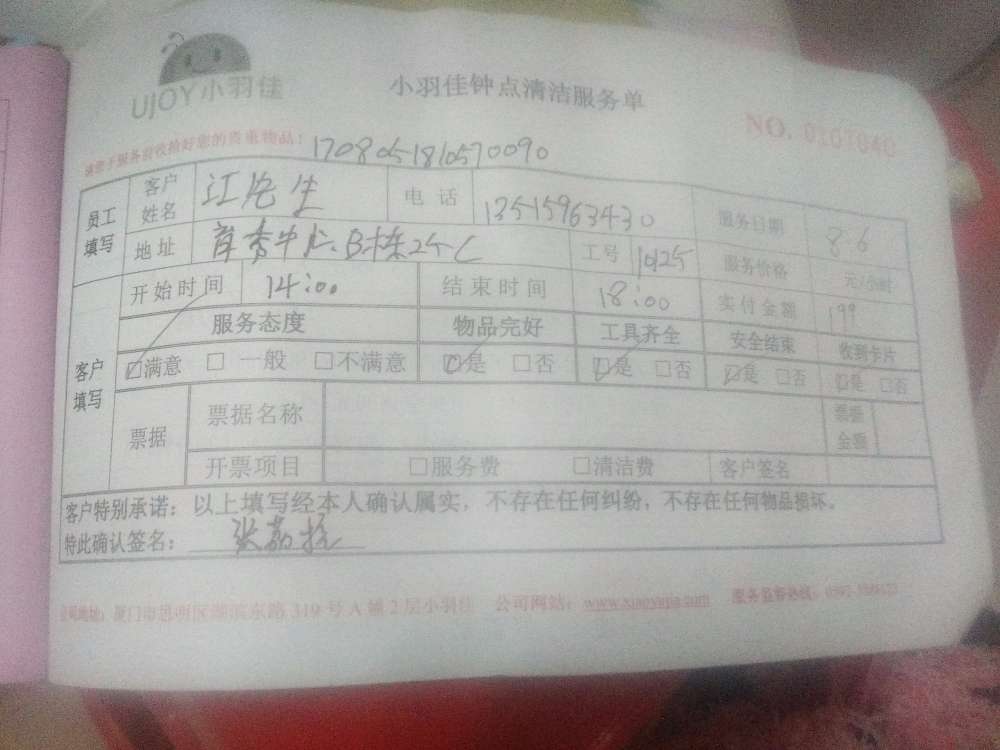 UJOY小羽佳
小羽佳钟点清洁服务单
NO. 0107040
请您于服务前收拾好您的贵重物品：1708051810570090
员工填写 客户姓名 江先生 电话 13515963430 服务日期 8 6
地址 B栋25C 工号 10125 服务价格 元/小时
客户填写 开始时间 14:00 结束时间 18:00 实付金额 199
服务态度 物品完好 工具齐全 安全结束 收到卡片
☑满意 □一般 □不满意 ☑是 □否 ☑是 □否 ☑是 □否 ☑是 □否
票据 票据名称 票据金额
开票项目 □服务费 □清洁费 客户签名
客户特别承诺：以上填写经本人确认属实，不存在任何纠纷，不存在任何物品损坏。
特此确认签名：张
公司地址：厦门市思明区湖滨东路319号A铺2层小羽佳 公司网站：www.xiaoyujia.com 服务监督热线：0592-